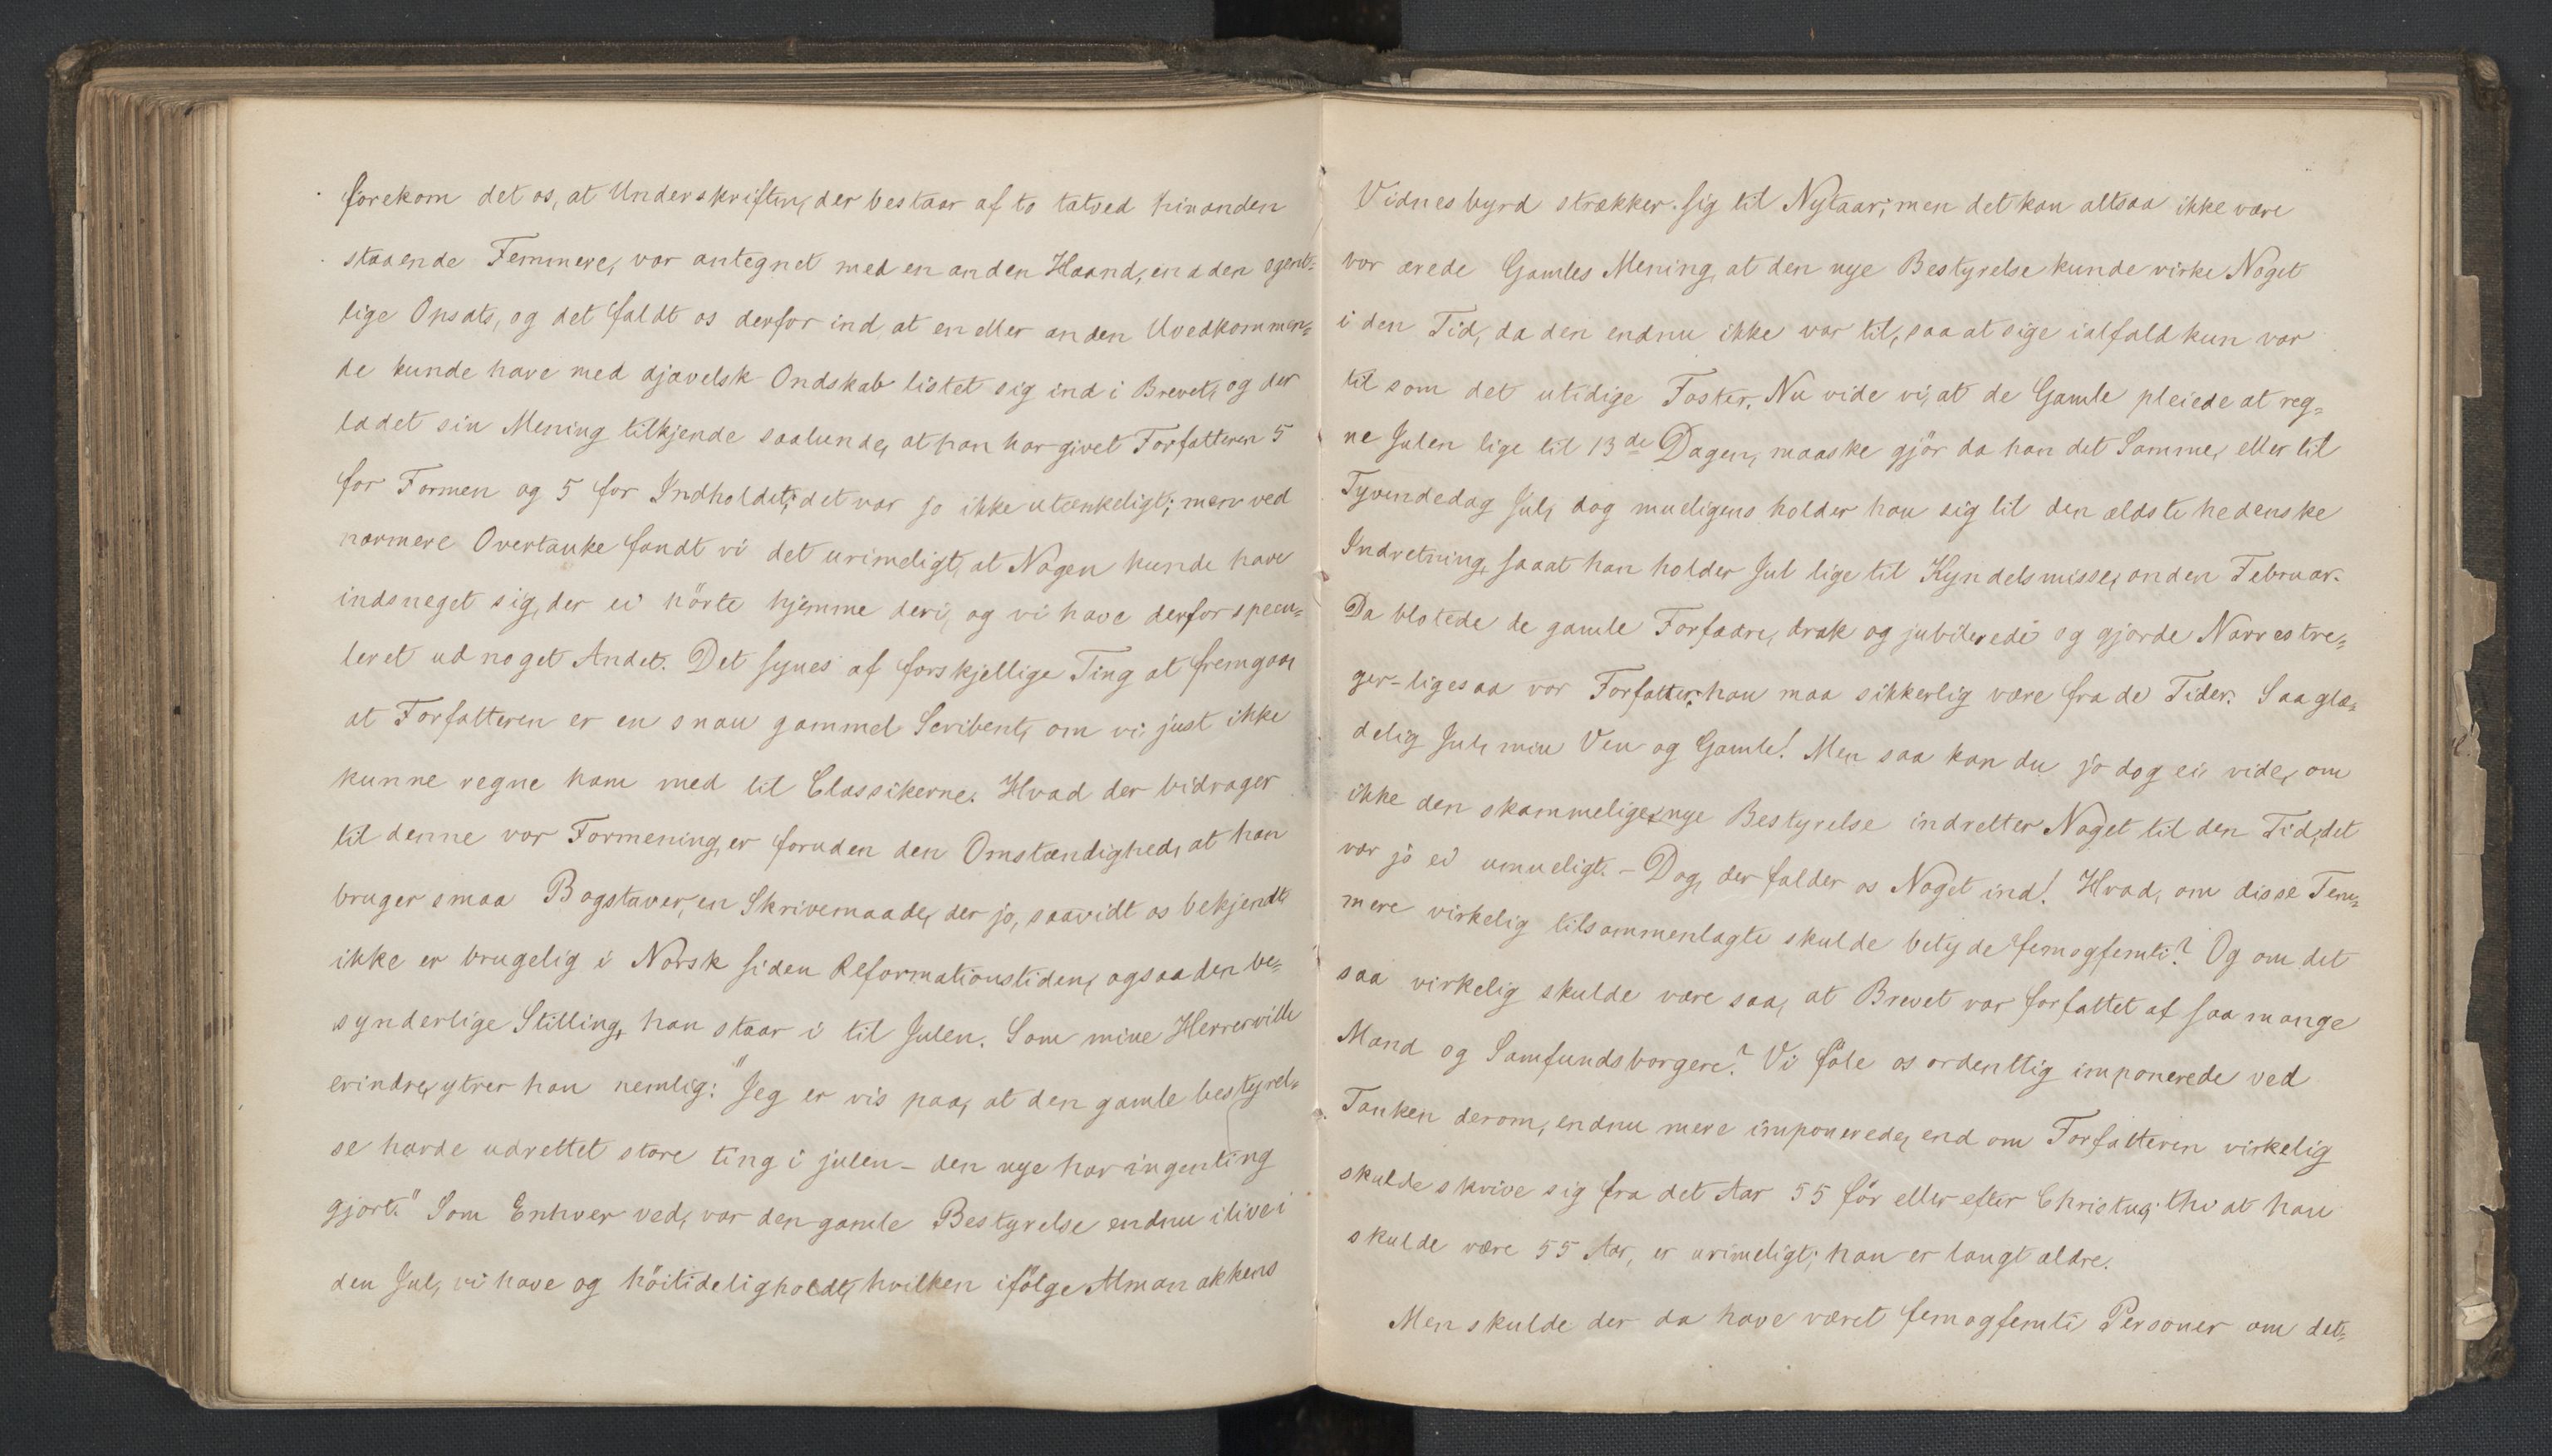 forekom det os, at Underskriften, der bestaar af to tætved hinanden
staaende Femmere, var antegnet med en anden Haand, end den egent-
lige Opsats, og det faldt os derfor ind, at en eller anden Uvedkommen-
de kunde have med djævelsk Ondskab listet sig ind i Brevet, og der
ladet sin Mening tilkjende saalunde, at han har givet Forfatteren 5
for Formen og 5 for Indholdet; det var jo ikke utænkeligt; men ved
nærmere Overtanke fandt vi det urimeligt, at Nogen kunde have
indsneget sig, der ei hörte hjemme deri, og vi have derfor specu-
leret ud noget Andet. Det synes af forskjellige Ting at fremgaa,
at Forfatteren er en snau gammel Scribent, om vi just ikke
kunne regne ham med til Classikerne. Hvad der bidrager
til denne vor Formening, er foruden den Omstændighed, at han
bruger smaa Bogstaver, en Skrivemaade, der jo, saavidt os bekjendt,
ikke er brugelig i Norsk siden Reformationstiden, ogsaa den be-
synderlige Stilling, han staar i til Julen. Som mine Herrer ville
erindre, ytrer han nemlig: "Jeg er vis paa, at den gamle bestyrel-
se havde udrettet store ting i julen - den nye har ingenting
gjort." Som Enhver ved, var den gamle Bestyrelse endnu ilive i
den Jul, vi have og höitideligholdt, hvilken ifölge Almanakkens
Vidnesbyrd strækker sig til Nytaar; men det kan altsaa ikke være
vor ærede Gamles Mening, at den nye Bestyrelse kunde virke Noget
i den Tid, da den endnu ikke var til, saa at sige ialfald kun var
til som det utidige Foster. Nu vide vi, at de Gamle pleiede at reg-
ne Julen lige til 13de Dagen, maaske gjör da han det Samme, eller til
Tyvendedag Jul, dog mueligens holder han sig til den ældste hedenske
Indretning, saaat han holder Jul lige til Kyndelsmisse, anden Februar.
Da blotede de gamle Forfædre, drak og jubilerede og gjorde Narrestre-
ger - ligesaa vor Forfatter; han maa sikkerlig være fra de Tider. Saa glæ-
delig Jul, min Ven og Gamle! Men saa kan du jo dog ei vide, om
ikke den skammelige nye Bestyrelse indretter Noget til den Tid, det
var jo ei umueligt. - Dog, der falder os Noget ind! Hvad, om disse Fem-
mere virkelig tilsammenlagte skulde betyde femogfemti? Og om det
saa virkelig skulde være saa, at Brevet var forfattet af saa mange
Mænd og Samfundsborgere? Vi föle os ordentlig imponerede ved
Tanken derom, endnu mere imponerede, end om Forfatteren virkelig
skulde skrive sig fra det Aar 55 för eller efter Christus; thi at han
skulde være 55 Aar, er urimeligt; han er langt ældre.
Men skulde der da have været femogfemti Personer om det-